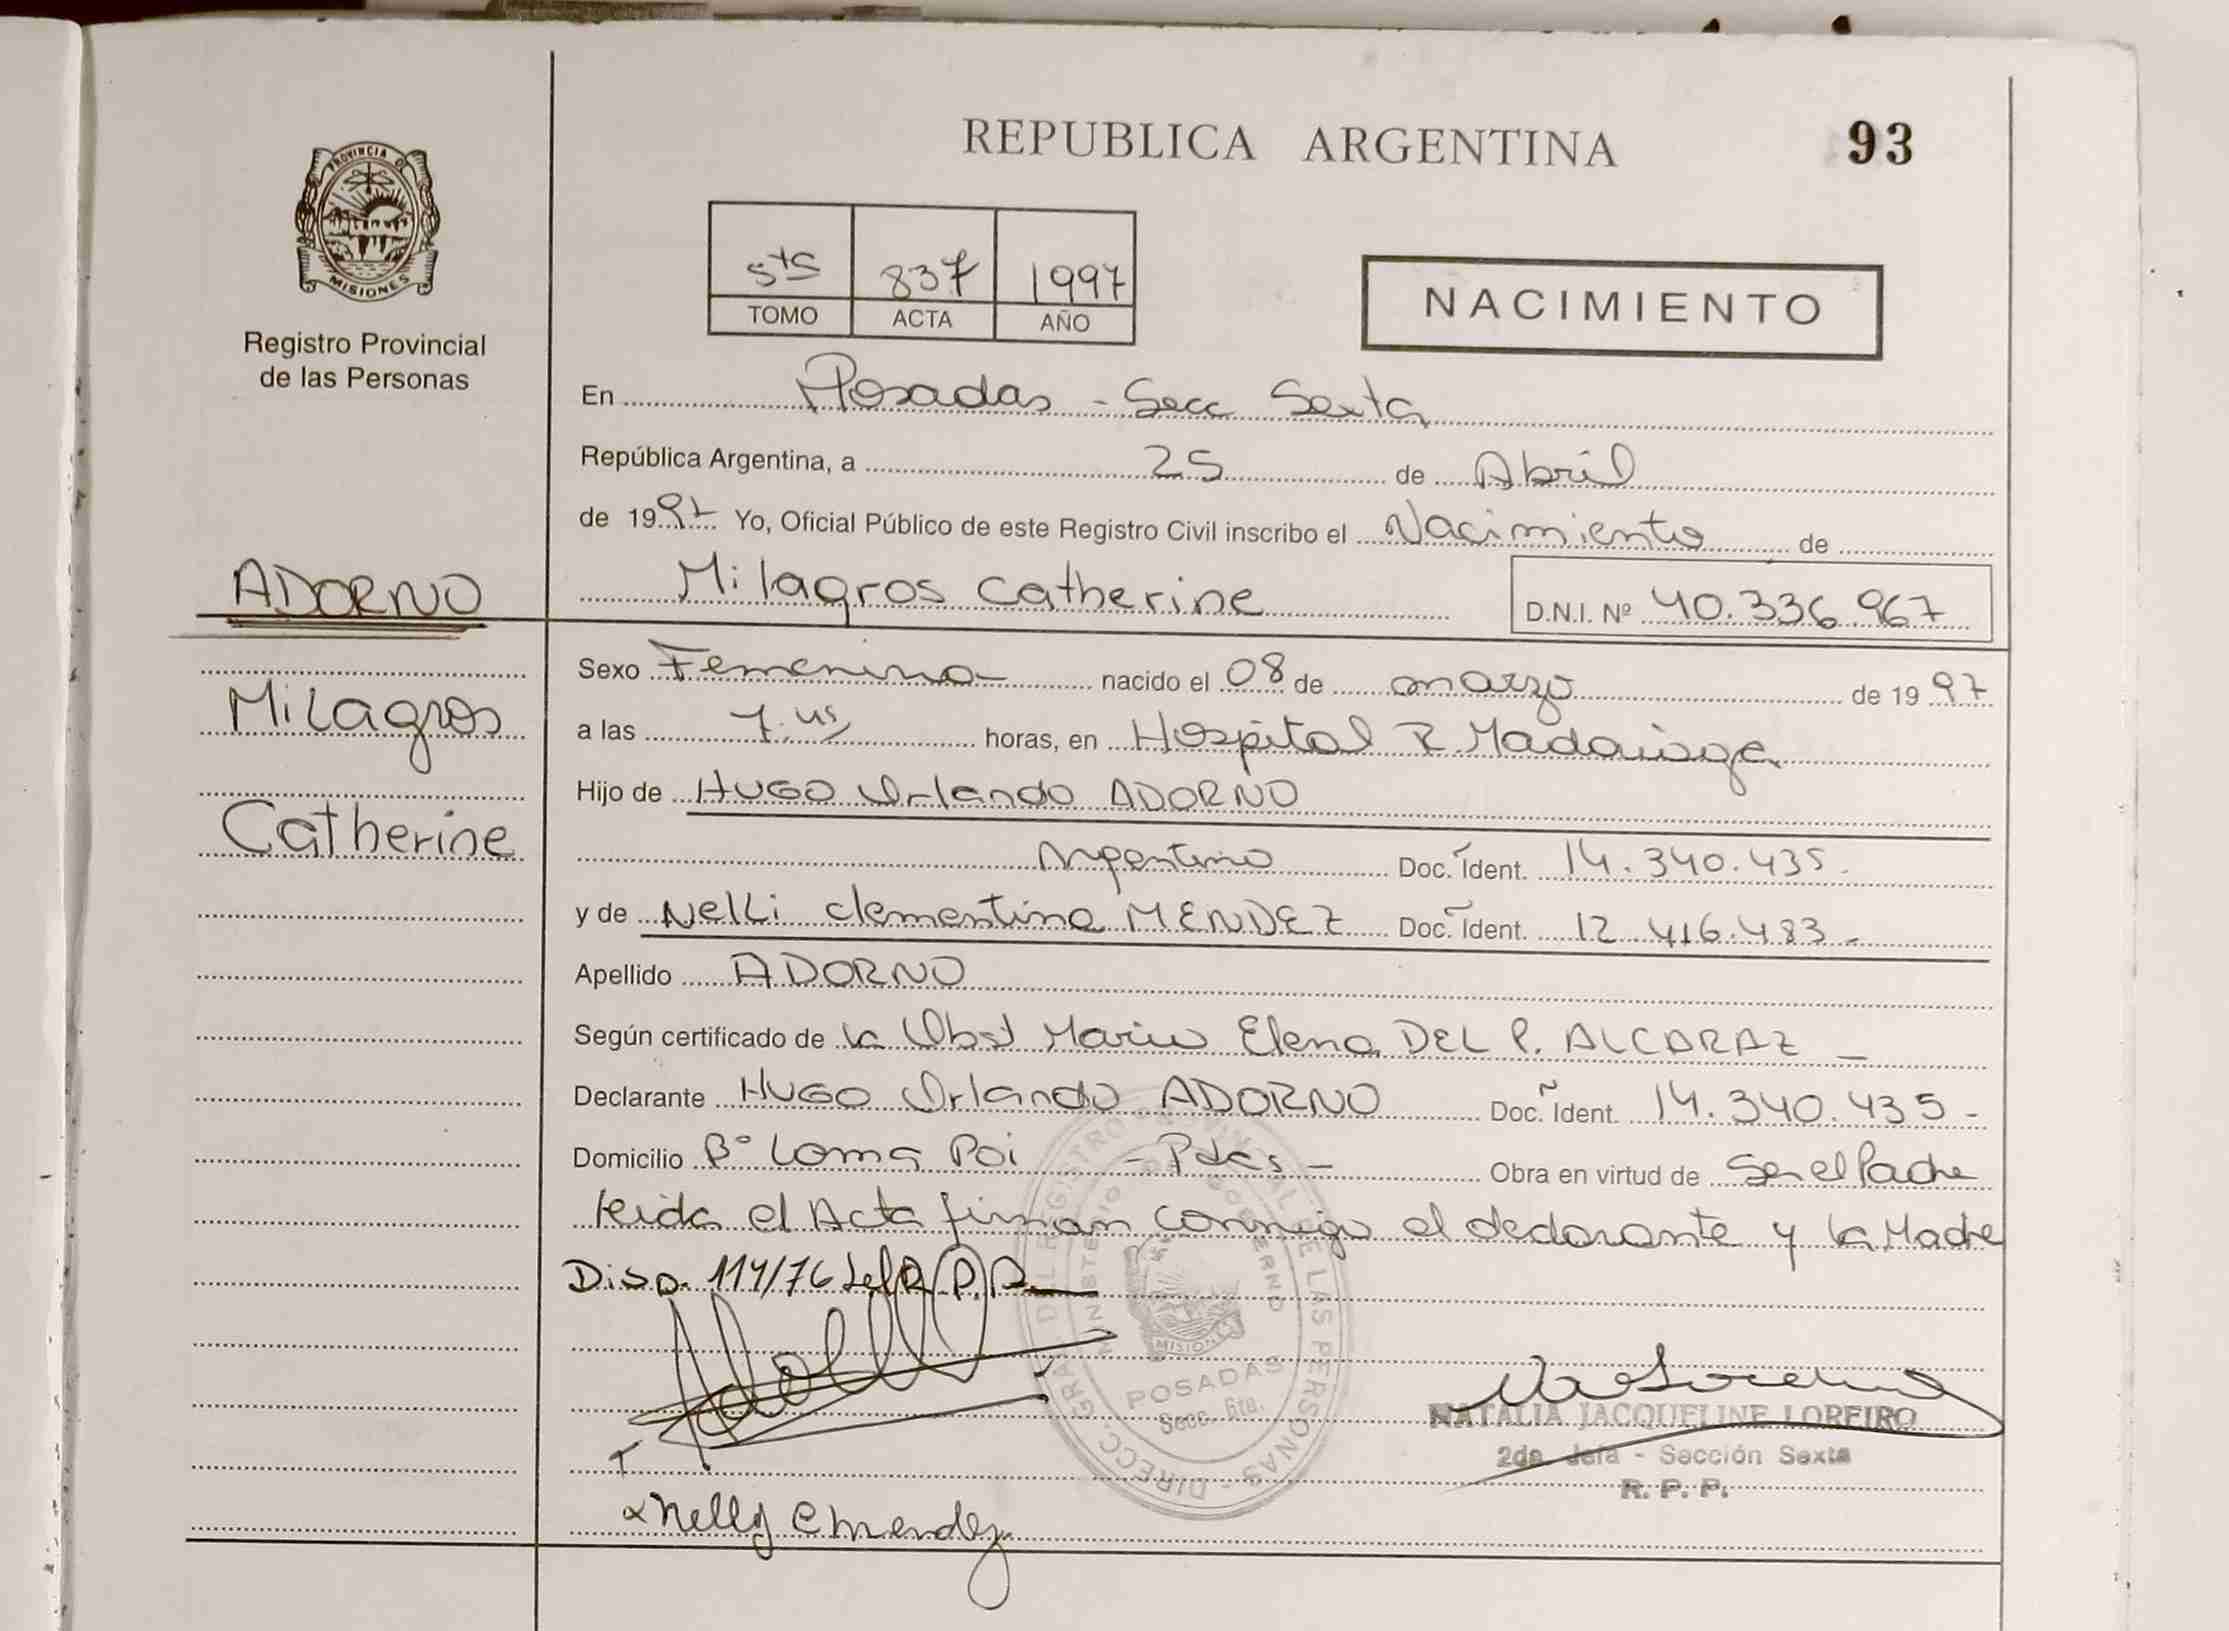 REPUBLICA ARGENTINA
93
PROVINCIA DE
MISIONES
Registro Provincial
de las Personas
5to 837 1997
TOMO ACTA AÑO
NACIMIENTO
En Posadas - Secc Sexta
República Argentina, a 25 de Abril
de 1997 Yo, Oficial Público de este Registro Civil inscribo el Nacimiento de
Milagros Catherine D.N.I. Nº 40.336.967
ADORNO
Milagros
Catherine
Sexo Femenino nacido el 08 de marzo de 1997
a las 7.45 horas, en Hospital R Madariaga
Hijo de HUGO Orlando ADORNO
Argentino Doc. Ident. 14.340.435.
y de Nelli Clementina MENDEZ Doc. Ident. 12.416.483 -
Apellido ADORNO
Según certificado de la Obst Maria Elena DEL P. ALCARAZ -
Declarante HUGO Orlando ADORNO Doc. Ident. 14.340.435 -
Domicilio Bº Loma Poi - Pdas - Obra en virtud de Ser el Padre
leida el Acta firman conmigo el declarante y la Madre
Disp. 114/76 del R.P.P.
DIRECC. GRAL. DEL REGISTRO PROVINCIAL DE LAS PERSONAS
MINISTERIO DE GOBIERNO
MISIONES
POSADAS
Secc. 6ta.
NATALIA JACQUELINE LOREIRO
2da Jefa - Sección Sexta
R. P. P.
Nelly C Mendez